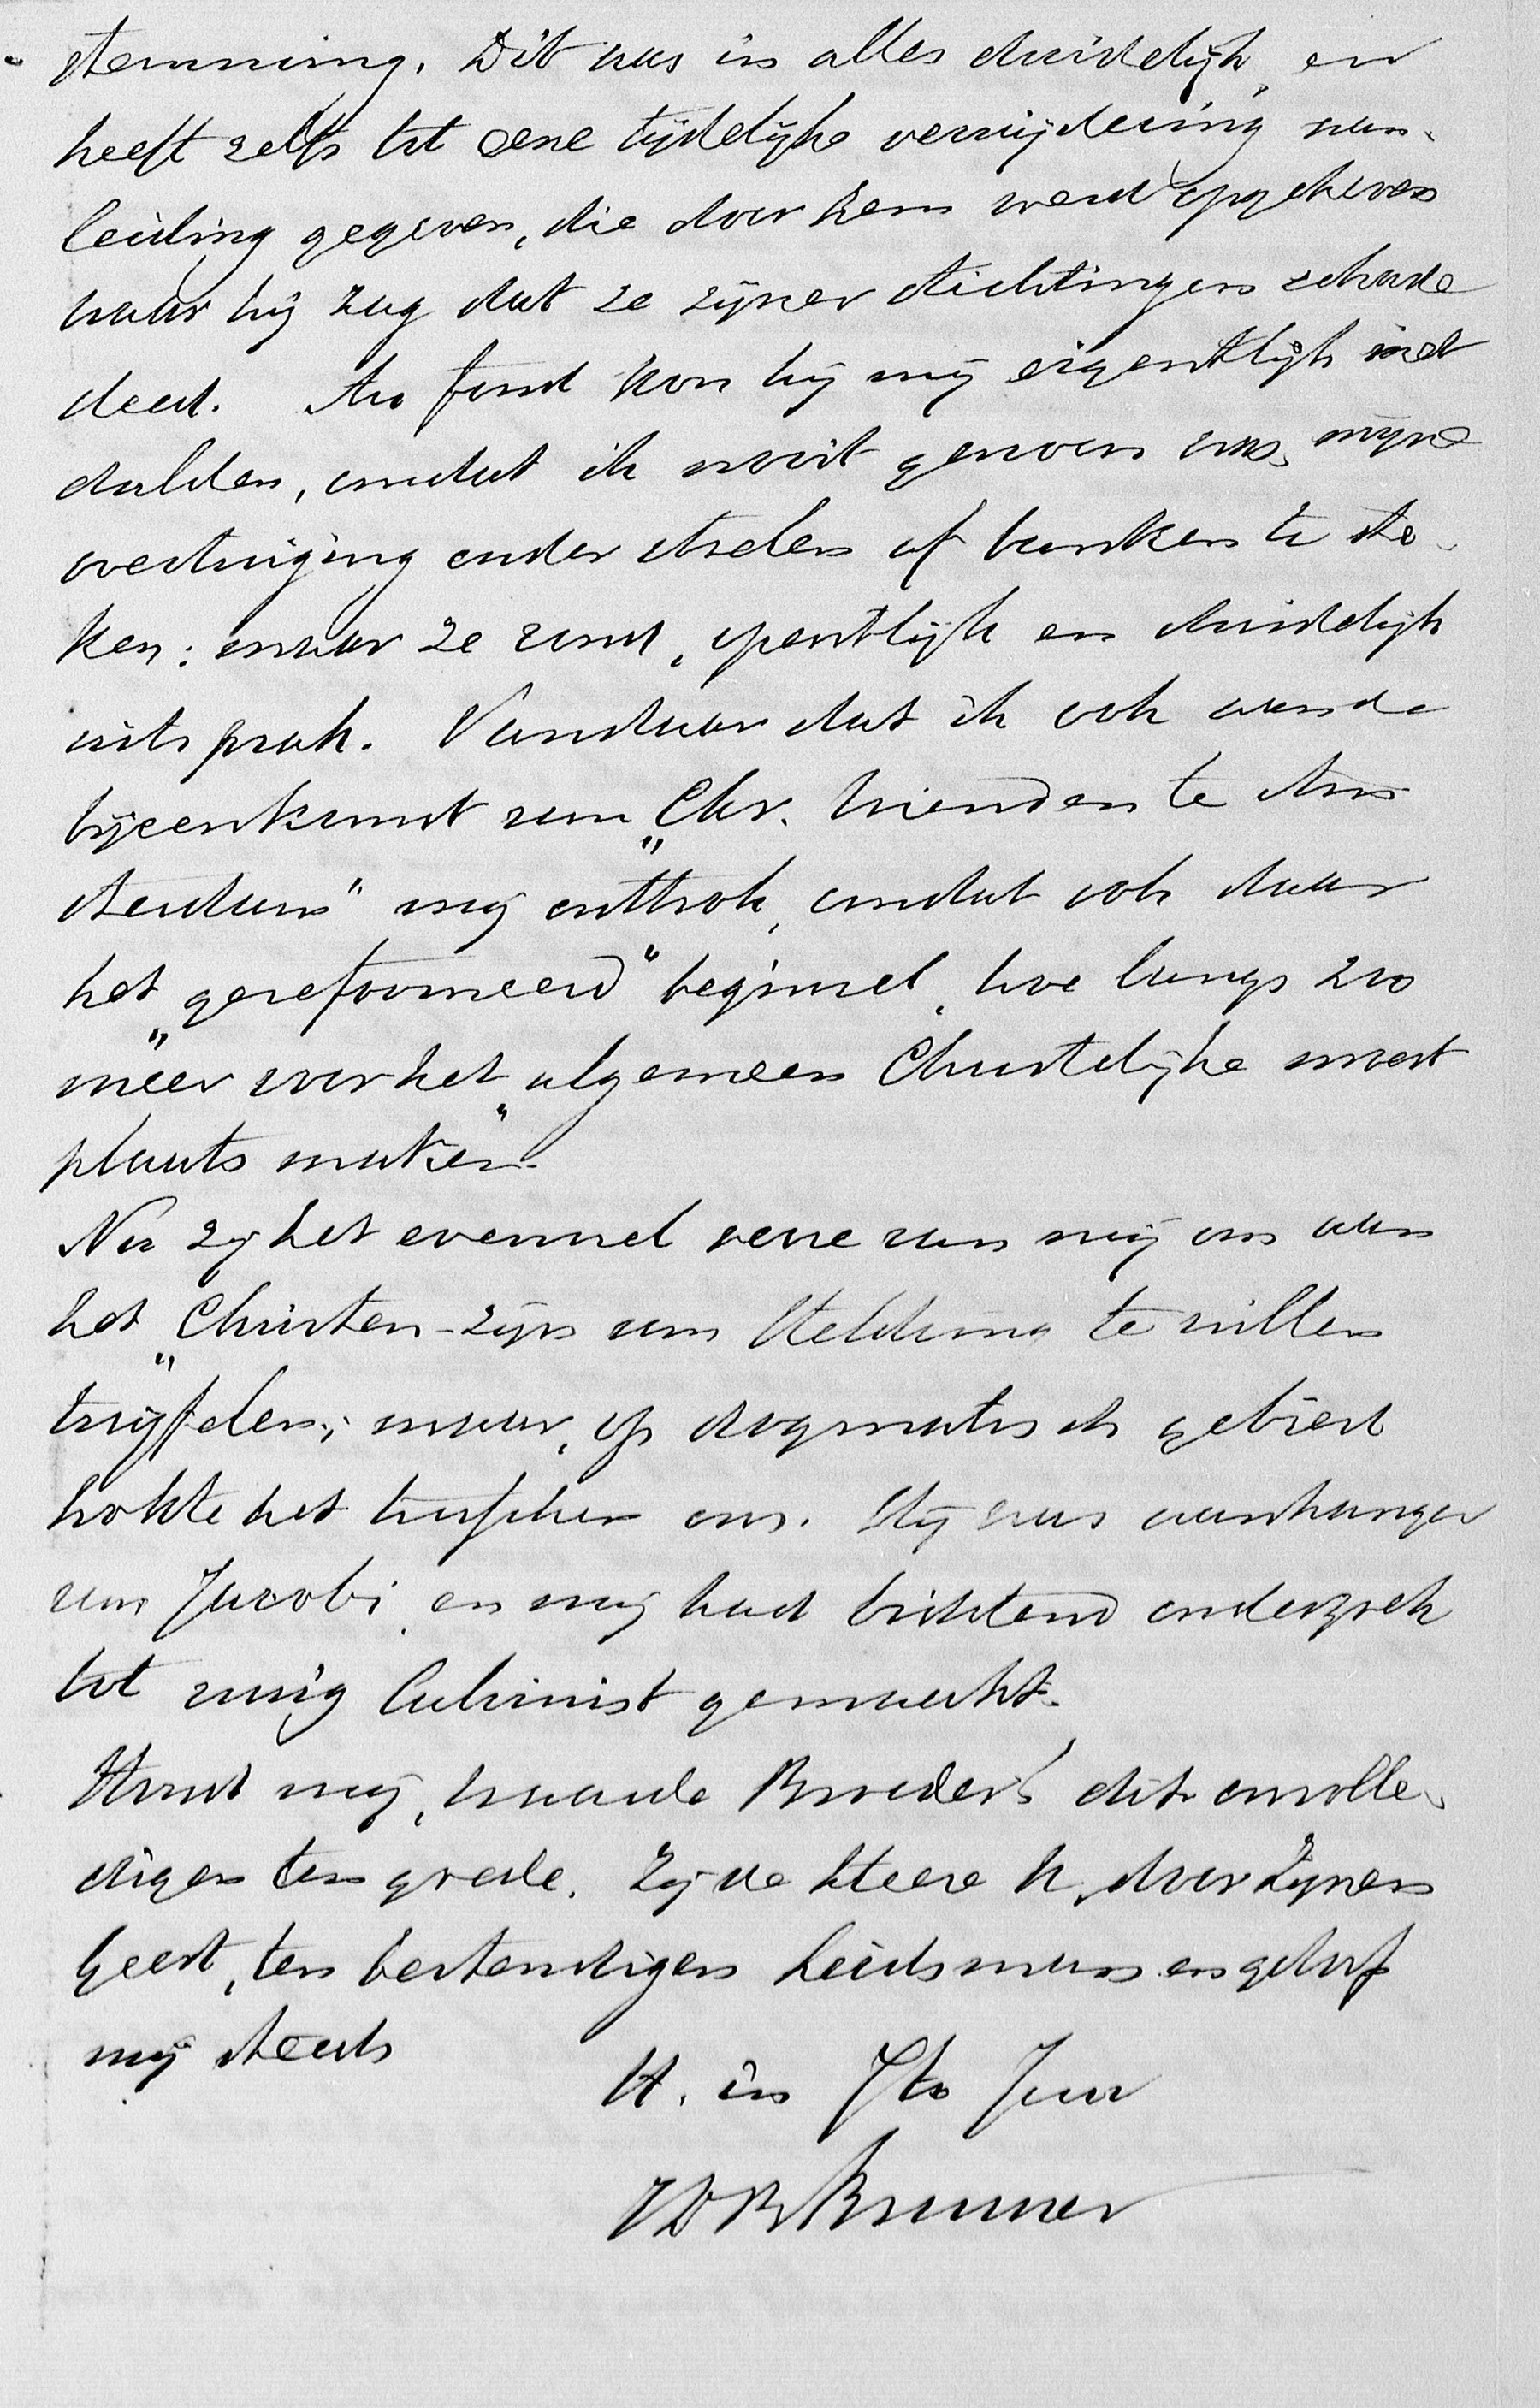 stemming. Dit was in alles duidelijk, en
heeft zelfs tot eene tijdelijke verwijdering aan-
leiding gegeven, die door hem werd opgeheven
waar hij zag dat ze zijner stichtingen schade
deed. Au fond kon hij mij eigentlijk niet
dulden, omdat ik nooit gewoon was, mijne
overtuiging onder stoelen of banken te ste-
ken; maar ze rond, opentlijk en duidelijk
uitsprak. Vandaar dat ik ook aan de
bijeenkomst van „Chr. Vrienden te Am-
sterdam" mij onttrok, omdat ook daar
het „gereformeerd" beginsel, hoe langs zoo
meer voor het „algemeen Christelijke" moest
plaats maken.
Nu zij het evenwel verre van mij om aan
het „Christen-zijn van Heldring te willen
twijffelen; maar, op dogmatisch gebied
hokte het tusschen ons. Hij was aanhanger
van Jacobi, en mij had biddend onderzoek
tot innig Calvinist gemaakt.
Houd mij, waarde Broeder! dit onvolle-
digen ten goede. Zij de Heere U, door Zijnen
Geest, ten bestendigen Leidsman en geloof
mij steeds
U. in Jto Juw
JDB Brummer